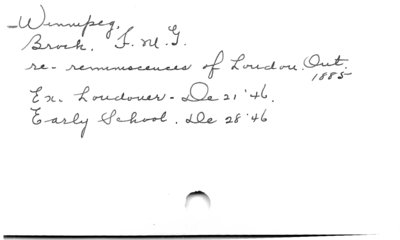 Winnipeg.
Brock. F. M. G.
re - reminiscences of London. Ont.
1885
Ex. Londoner - De 21 '46.
Early School. De 28 '46